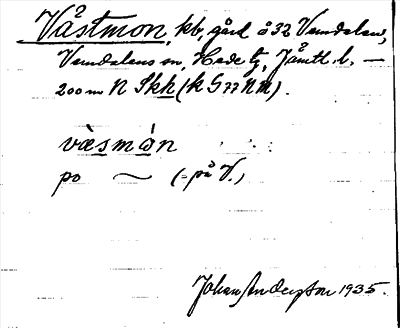 Våstmon, kb, gård å 32 Vemdalen,
Vemdalens sn, Hede tg, Jämtl. l. —
200 m N Skh (k G 77 N N).
våsmån
po ~ (= på V.)
Johan Anderson 1935.